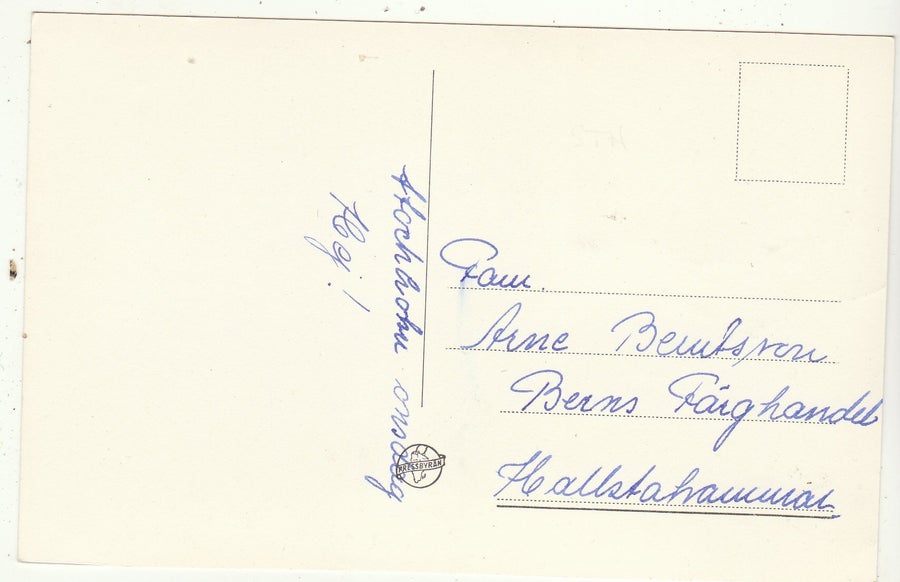 Stockholm onsdag
Hej!
Fam.
Arne Berntsson
Berns Färghandel
Hallstahammar
PRESSBYRÅN